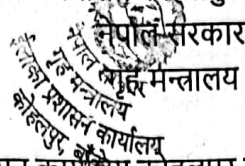 नेपाल सरकार
गृह मन्त्रालय
नेपाल
गृह मन्त्रालय
इलाका प्रशासन कार्यालय
कोहलपुर, बाँके